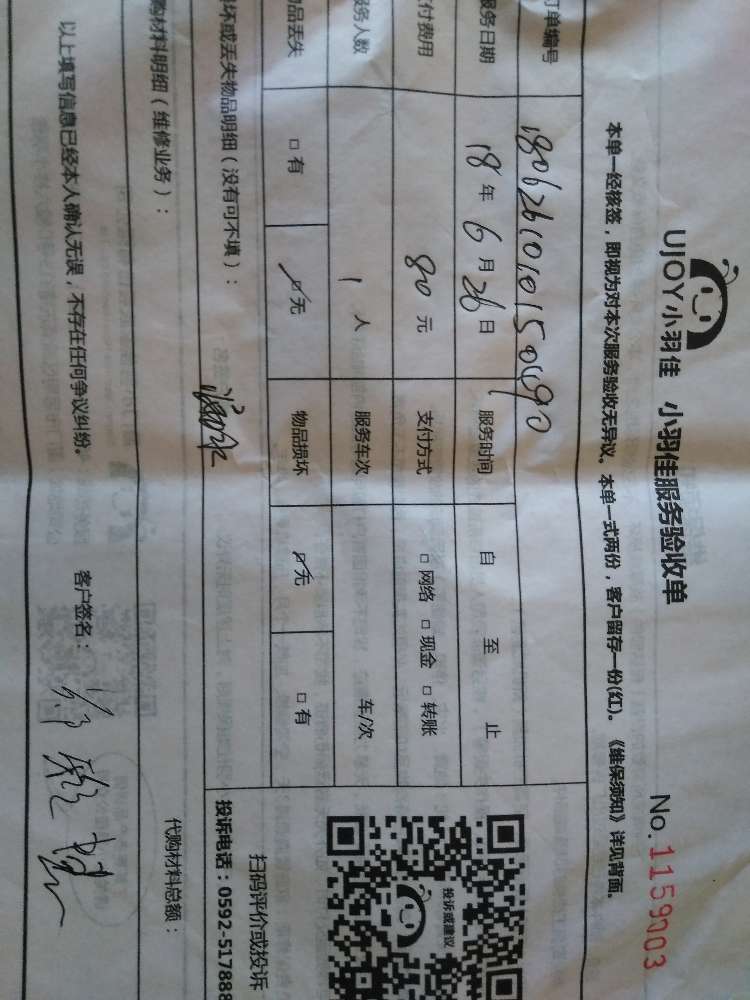 UJOY小羽佳 小羽佳服务验收单
No. 1159003
本单一经核签，即视为对本次服务验收无异议。本单一式两份，客户留存一份(红)。《维保须知》详见背面。
订单编号
服务日期 18年6月26日 服务时间 自 至 止
付费用 80元 支付方式 □网络 □现金 □转账
服务人数 1人 服务车次 车/次
物品丢失 □有 ☑无 物品损坏 ☑无 □有
坏或丢失物品明细（没有可不填）：
购材料明细（维修业务）： 代购材料总额：
以上填写信息已经本人确认无误，不存在任何争议纠纷。 客户签名：
投诉或建议
扫码评价或投诉
投诉电话：0592-517888